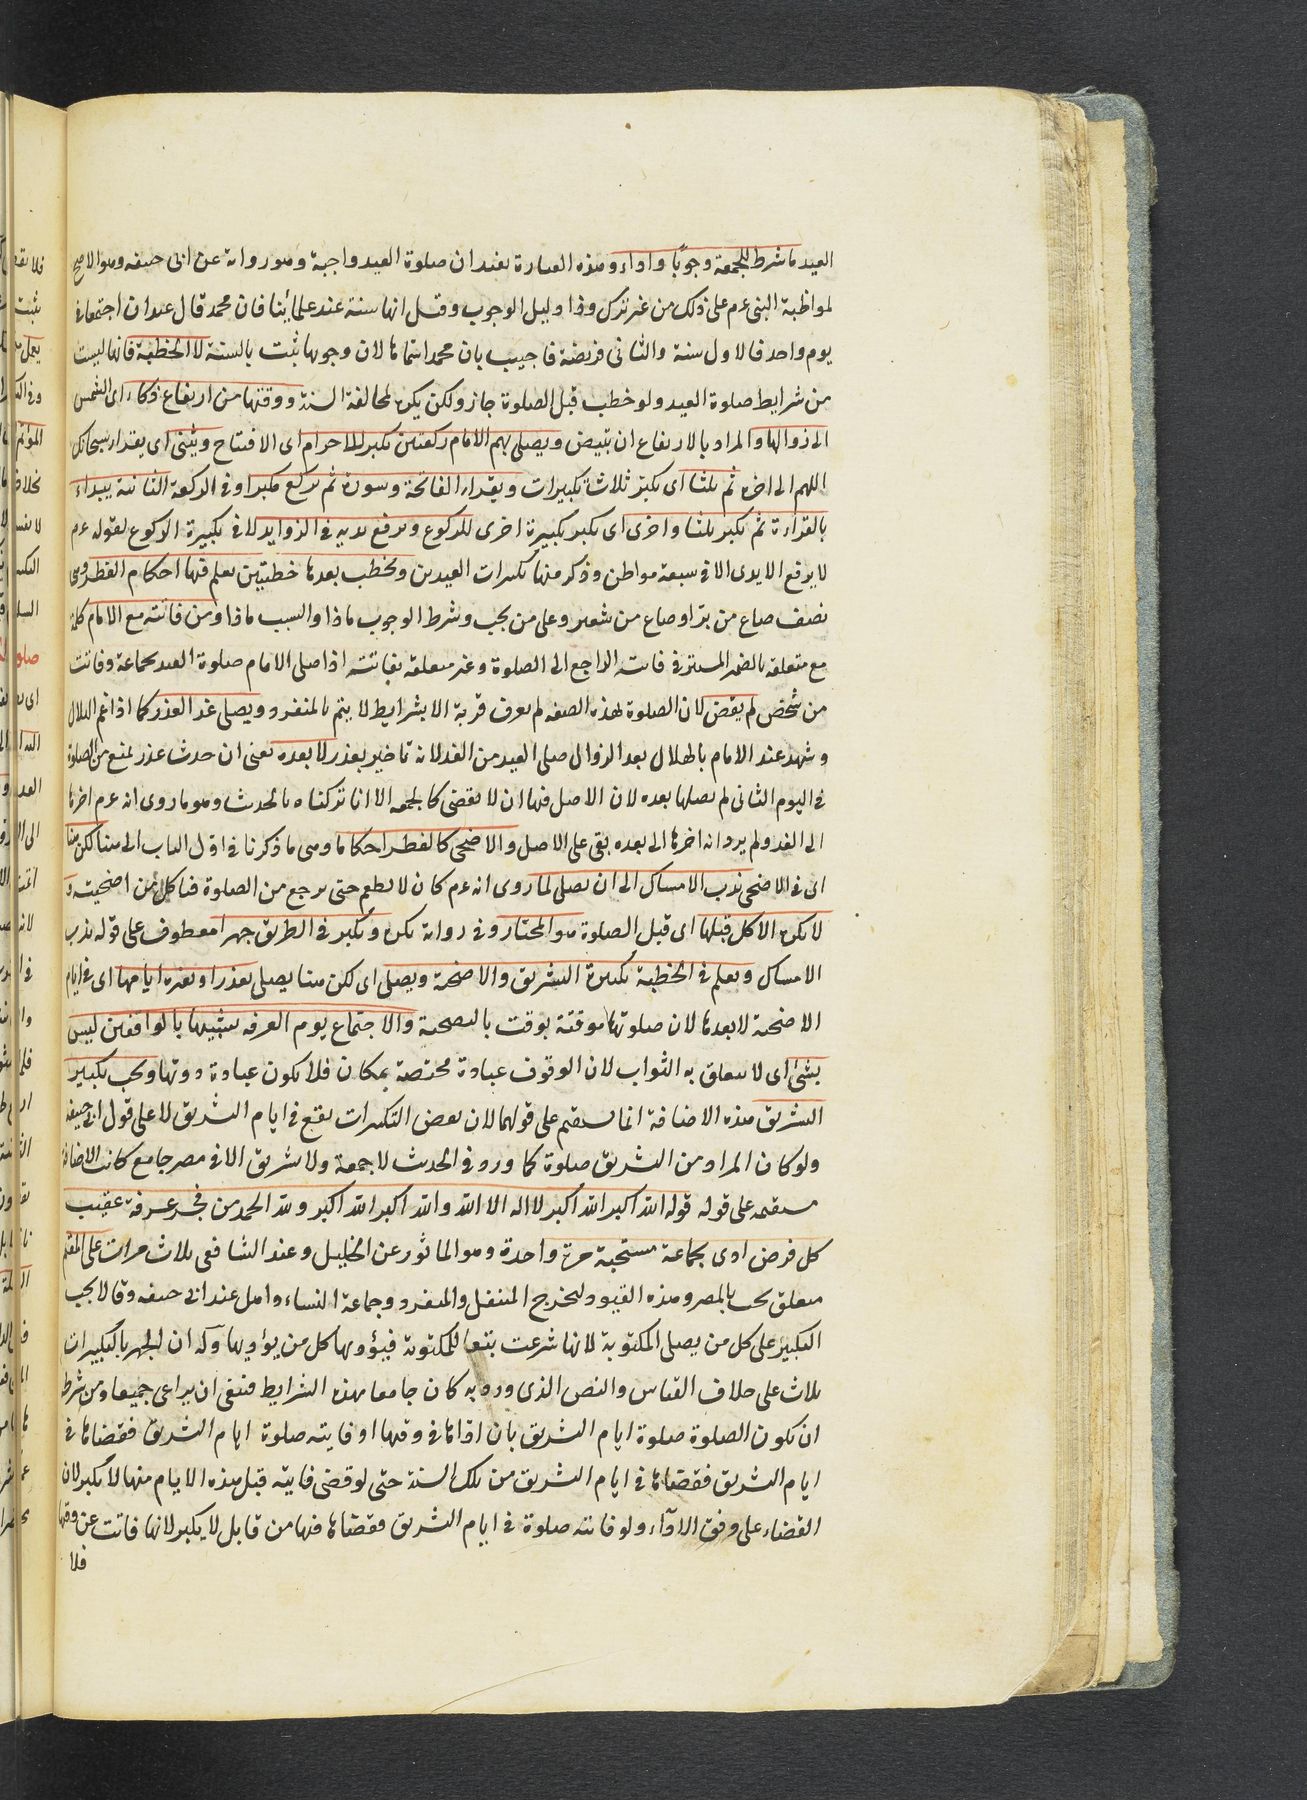 العيد ما شرط للجمعة وجوبًا واداء وهذه العبارة يفيد ان صلوة العيد واجبة وهو رواية عن ابى حنيفه وهو الاصح
لمواظبة النبى عم على ذلك من غير ترك وذا دليل الوجوب وقيل انها سنة عند علمائنا فان محمد قال عيدان اجتمعا فى
يوم واحد فالاول سنة والثانى فريضة فاجيب بان محمدا سماها لان وجوبها ثبت بالسنة لا الخطبة فانها ليست
من شرايط صلوة العيد ولو خطب قبل الصلوة جاز ولكن يكره لمخالفة السنة ووقتها من ارتفاع ذكاء اى الشمس
الى زوالها والمراد بالارتفاع ان تبيض ويصلى بهم الامام ركعتين مكبر للاحرام اى الافتتاح ويثنى اى يقراء سبحانك
اللهم الى اخره ثم ثلثا اى يكبر ثلاث تكبيرات ويقراء الفاتحة وسورة ثم يركع مكبرا وفى الركعة الثانية يبداء
بالقراءة ثم يكبر ثلثا واخرى اى يكبر تكبيرة اخرى للركوع ويرفع يديه فى الزوايد لا فى تكبيرة الركوع لقوله عم
لا يرفع الايدى الا فى سبعة مواطن وذكر منها تكبيرات العيدين ويخطب بعدها خطبتين يعلم فيها احكام الفطر وهى
نصف صاع من بر او صاع من شعير وعلى من يجب وشرط الوجوب ماذا والسبب ماذا ومن فاتته مع الامام كلمة
مع متعلقه بالضمير المستتر فى فاتته الراجع الى الصلوة وغير متعلقه بفاتته اذا صلى الامام صلوة العيد بجماعة وفاتت
من شخص لم يقض لان الصلوة لهذه الصفه لم يعرف قربة الا بشرايط لا يتم بالمنفرد ويصلى غدا لعذر كما اذا غم الهلال
وشهد عند الامام بالهلال بعد الزوال صلى العيد من الغد لانه تاخير بعذر لا بعده يعنى ان حدث عذر لمنع من الصلوة
فى اليوم الثانى لم يصلها بعده لان الاصل فيها ان لا يقضى كالجمعه الا انا تركناه بالحديث وهو ما روى انه عم اخرها
الى الغد ولم يرو انه اخرها الى بعده بقى على الاصل والاضحى كالفطر احكاما وهى ما ذكرنا فى اول الباب الى هنا لكن هنا
اى فى الاضحى ندب الامساك الى ان يصلى لما روى انه عم كان لا يطعم حتى يرجع من الصلوة فياكل من اضحيته و
لا يكره الاكل قبلها اى قبل الصلوة هو المختار وفى رواية يكره ويكبر فى الطريق جهرا معطوف على قوله ندب
الامساك ويعلم فى الخطبة تكبيرة التشريق والاضحية ويصلى اى لكن هنا يصلى بعذر او بغيره ايامها اى فى ايام
الاضحية لا بعدها لان صلوتها موقتة بوقت بالتضحية والاجتماع يوم العرفه تشبيها بالواقفين ليس
بشئ اى لا يتعلق به الثواب لان الوقوف عبادة مختصة بمكان فلا يكون عبادة دونها ويجب تكبير
التشريق هذه الاضافة انما يستقيم على قولهما لان بعض التكبيرات يقع فى ايام التشريق لا على قول ابى حنيفه
ولو كان المراد من التشريق صلوة كما ورد فى الحديث لا جمعة ولا تشريق الا فى مصر جامع كانت الاضافة
مستقيمه على قوله قوله الله اكبر الله اكبر لا اله الا الله والله اكبر الله اكبر ولله الحمد من فجر عرفة عقيب
كل فرض ادى بجماعة مستحبة مرة واحدة وهو الماثور عن الخليل وعند الشافعى ثلاث مرات على المقيم
متعلق بيجب بالمصر وهذه القيود ليخرج المتنفل والمنفرد وجماعة النساء واهل عند ابى حنيفه وقالا يجب
التكبير على كل من يصلى المكتوبة لانها شرعت بتبعا للمكتوبة فيؤديها كل من يؤديها وله ان الجهر بالتكبيرات
ثلاث على خلاف القياس والنص الذى ورد به كان جامعا بهذه الشرايط فينبغى ان يراعى جميعها ومن شرط
ان يكون الصلوة صلوة ايام التشريق بان اداها فى وقتها او فايته صلوة ايام التشريق فقضاها فى
ايام التشريق فقضاها فى ايام التشريق من تلك السنة حتى لو قضى فايتة قبل هذه الايام منها لا يكبر لان
القضاء على وفق الاداء ولو فاتته صلوة فى ايام التشريق فقضاها فيها من قابل لا يكبر لانها فاتت عن وقتها
فلا